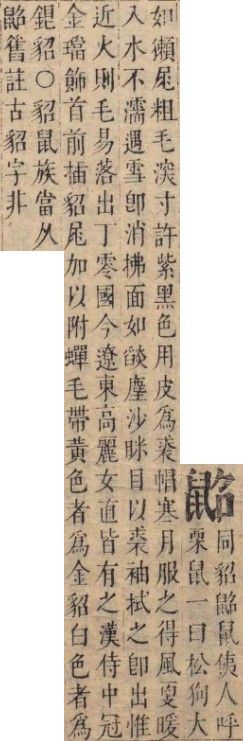 䶂
同貂䶂鼠侇人呼
栗鼠一曰松狗大
如獺尾粗毛深寸許紫黑色用皮爲裘帽寒月服之得風更暖
入水不濡遇雪卽消拂面如燄塵沙眯目以裘袖拭之卽出惟
近火則毛易落出丁零國今遼東高麗女直皆有之漢侍中冠
金璫飾首前插貂尾加以附蟬毛帶黃色者爲金貂白色者爲
銀貂○貂鼠族當从
䶂舊註古貂字非